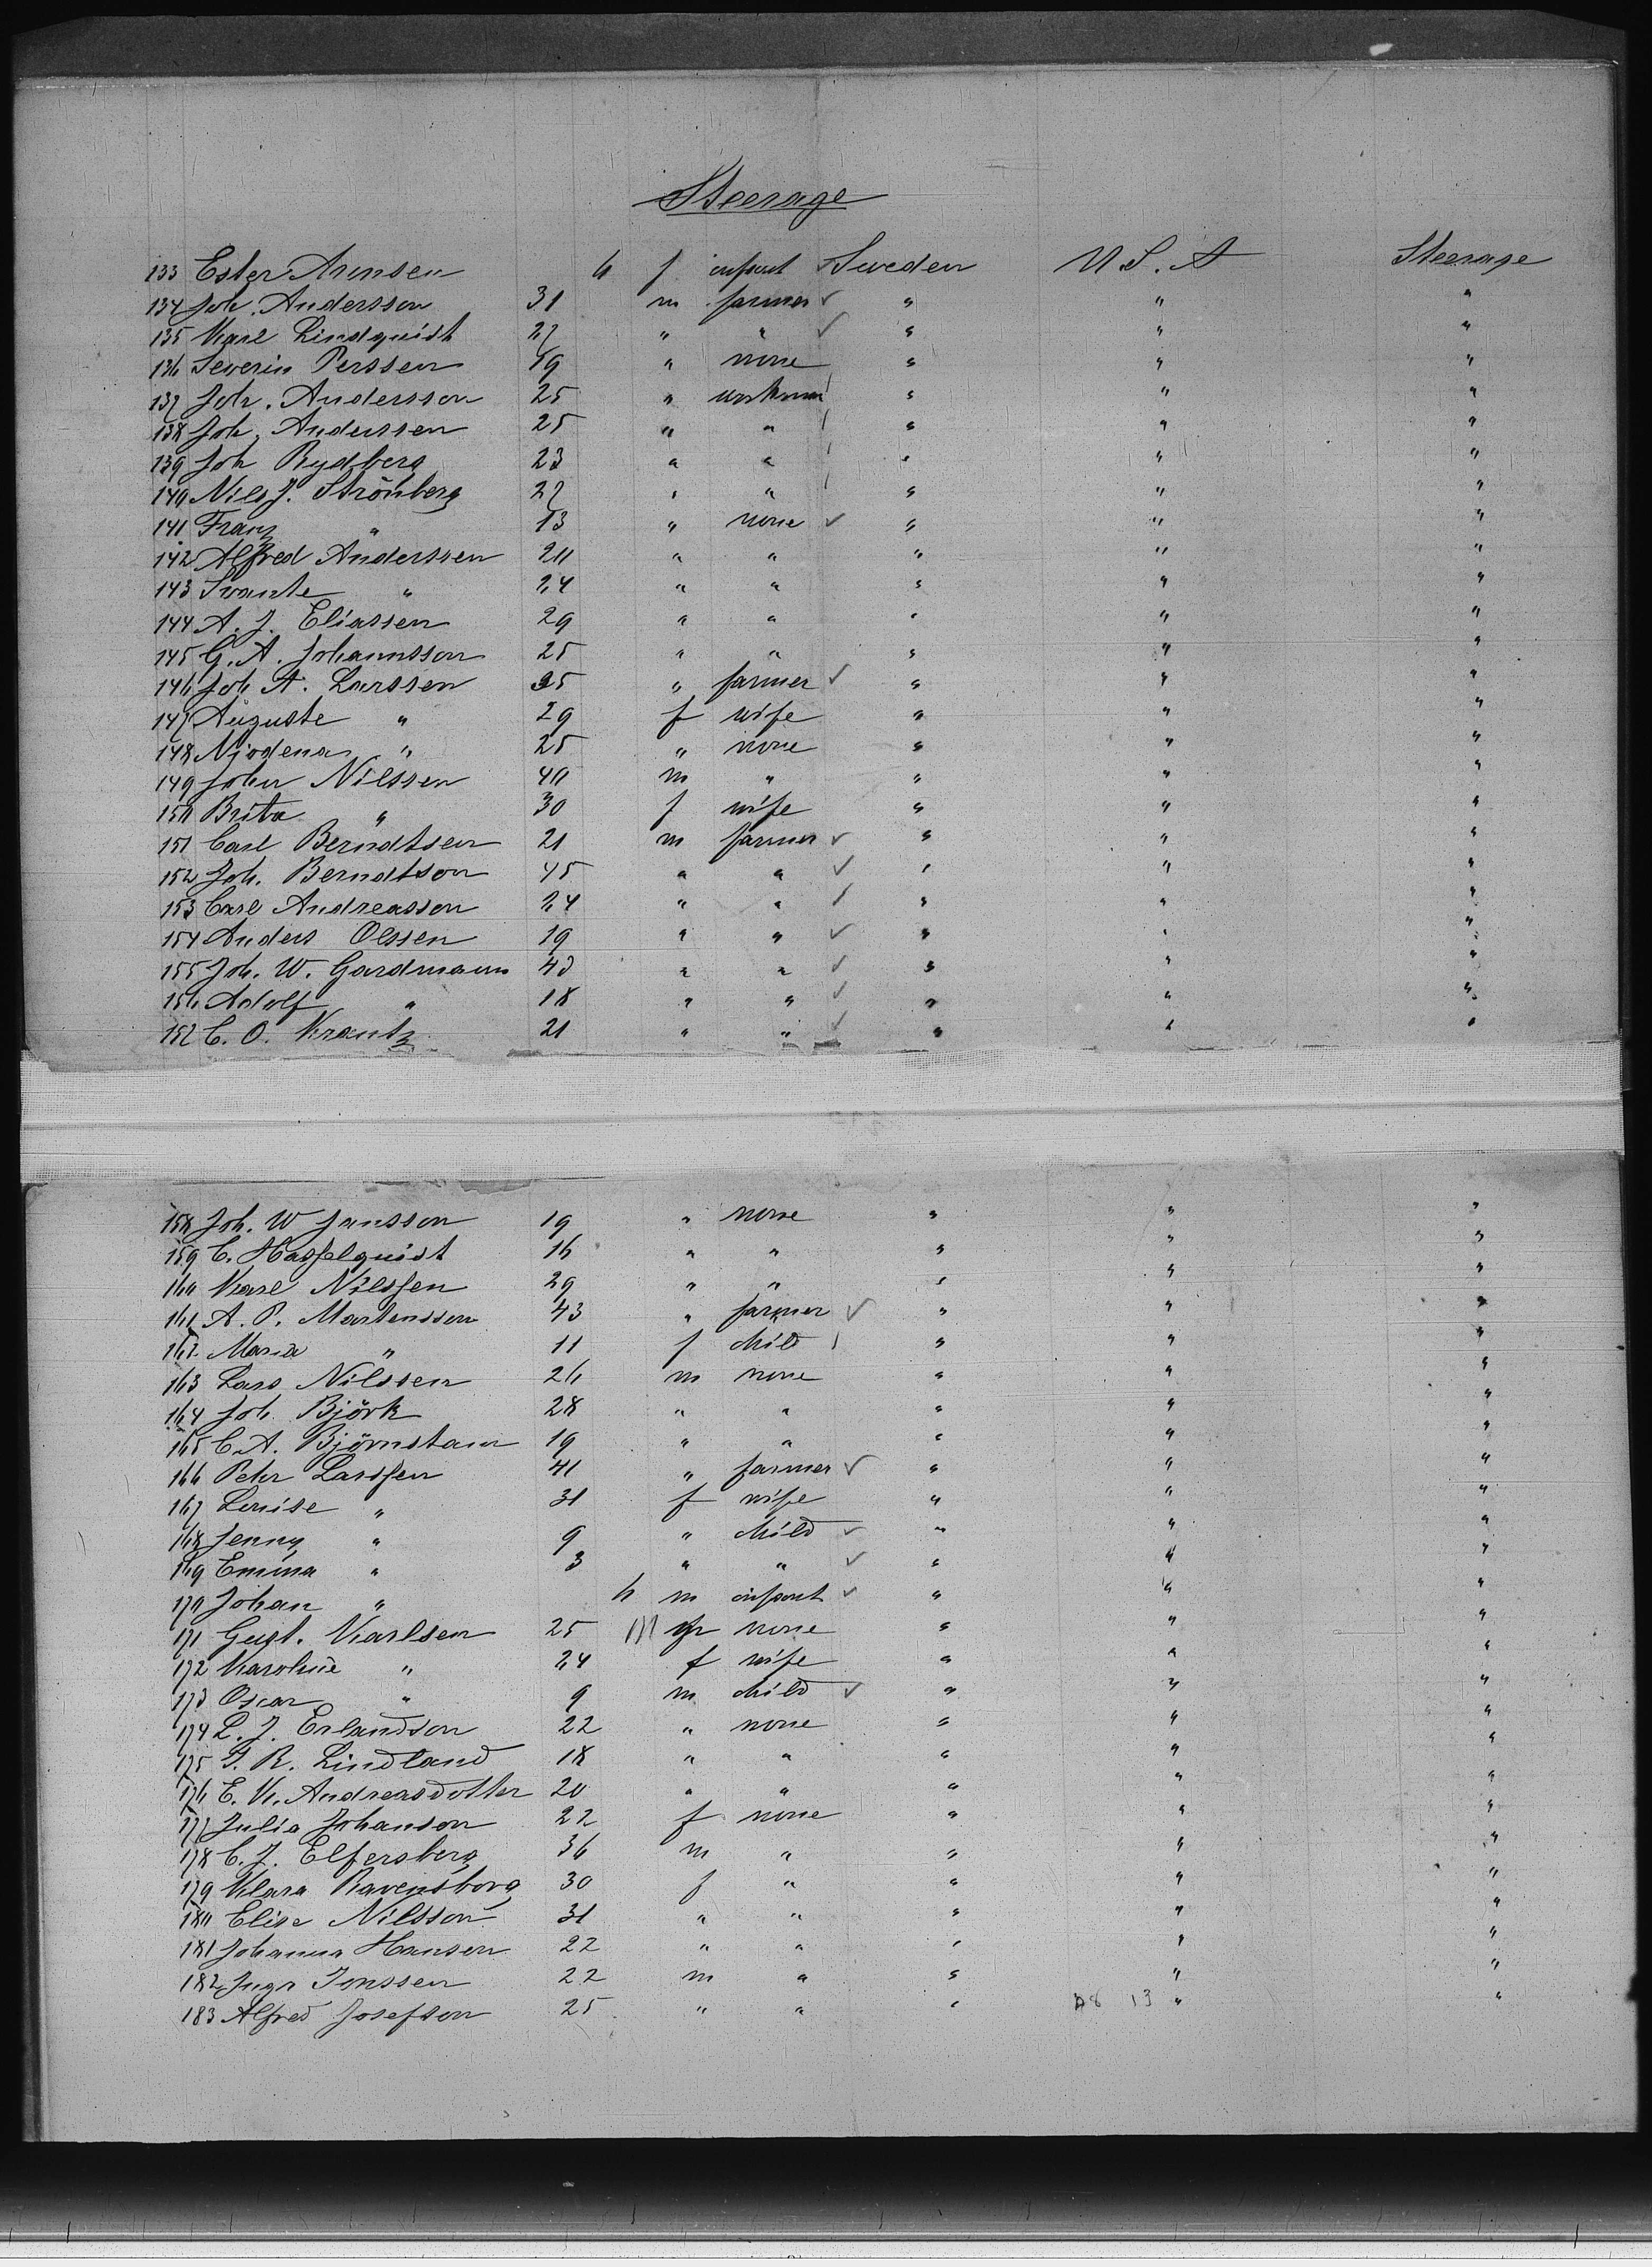 Steerage
133 Ester Arensen 6 f infant Sweden U.S.A Steerage
134 Joh. Andersson 31 m farmer " " "
135 Karl Lindquist 27 " " " " "
136 Severin Perssen 19 " none " " "
137 Joh. Andersson 25 " workman " " "
138 Joh. Anderssen 25 " " " " "
139 Joh Rydberg 23 " " " " "
140 Nils J. Strömberg 27 " " " " "
141 Franz " 13 " none " " "
142 Alfred Anderssen 20 " " " " "
143 Svante " 24 " " " " "
144 A. J. Eliassen 29 " " " " "
145 G. A. Johannsson 25 " " " " "
146 Joh A. Larssen 25 " farmer " " "
147 Auguste " 29 f wife " " "
148 " 25 " none " " "
149 John Nilssen 40 m " " " "
150 Brita " 30 f wife " " "
151 Carl Berndtsen 21 m farmer " " "
152 Joh. Berndtson 45 " " " " "
153 Carl Andreasson 24 " " " " "
154 Anders Olssen 19 " " " " "
155 Joh. W. Gardmann 43 " " " " "
156 Adolf " 18 " " " " "
157 C. O. Krantz 21 " " " " "
158 Joh. W Jansson 19 " none " " "
159 C. Hasselquist 16 " " " " "
160 Karl Nilssen 29 " " " " "
161 A. P. Martensson 43 " farmer " " "
162 Maria " 11 f child " " "
163 Lars Nilssen 26 m none " " "
164 Joh. Björk 28 " " " " "
165 C. A. Björnstam 19 " " " " "
166 Peter Larssen 41 " farmer " " "
167 Louise " 31 f wife " " "
168 Jenny " 9 " child " " "
169 Emma " 3 " " " " "
170 Johan " 6 m infant " " "
171 Gust. Karlsen 25 m none " " "
172 Karoline " 24 f wife " " "
173 Oscar " 9 m child " " "
174 L. J. Erlandson 22 " none " " "
175 R. Lindland 18 " " " " "
176 E. K. Andreasdotter 20 " " " " "
177 Julia Johanson 22 f none " " "
178 C. J. Elfersberg 36 m " " " "
179 Klara Ravensborg 30 f " " " "
180 Elise Nilsson 31 " " " " "
181 Johanna Hansen 22 " " " " "
182 Inge Jonssen 22 m " " " "
183 Alfred Josefson 25 " " " 13 " "